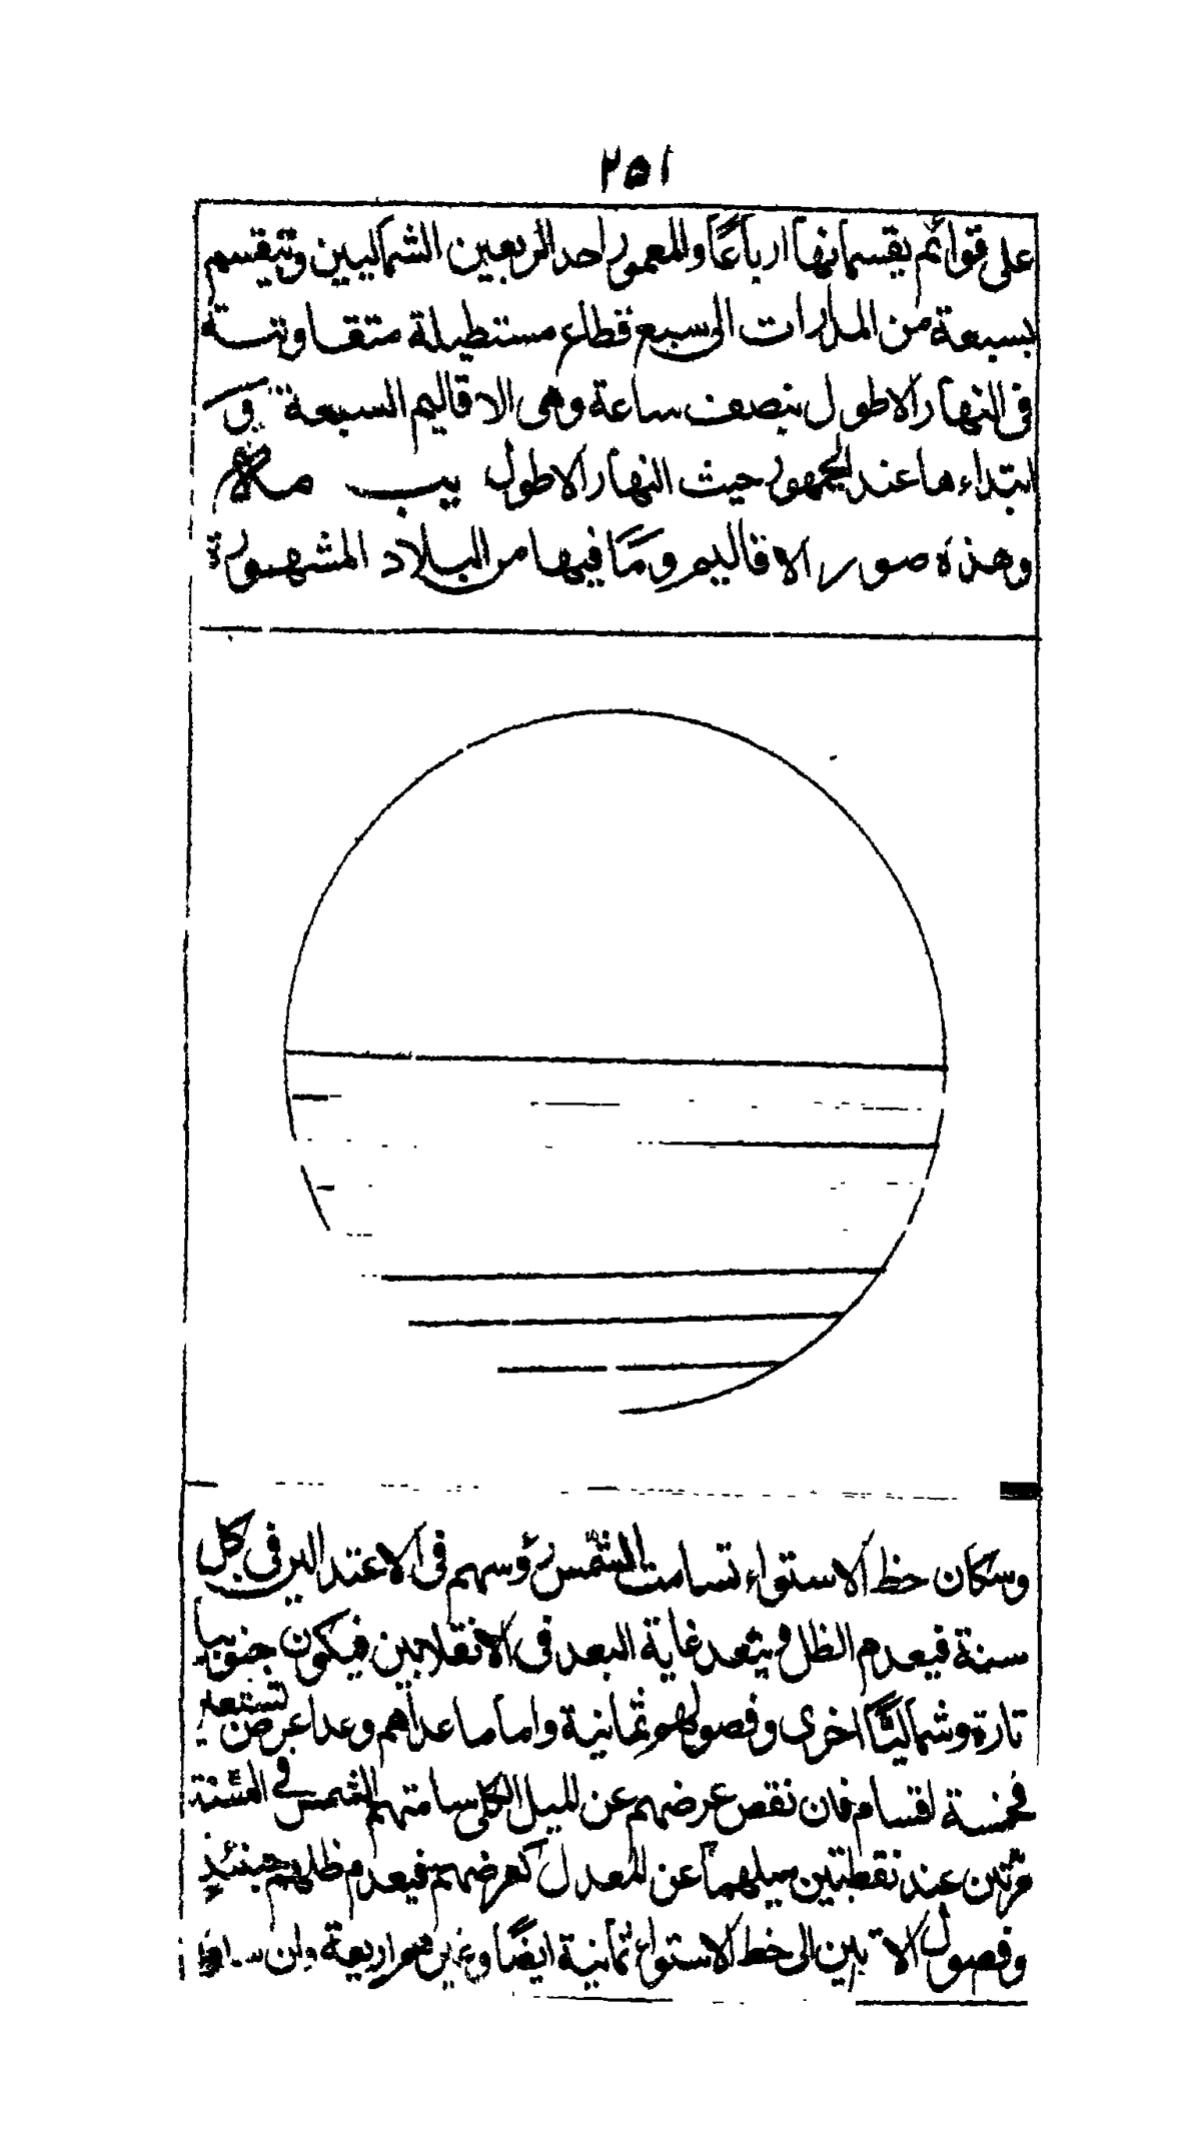 ٢٥١
على قوائم يقسمانها ارباعًا والمعمور احد الربعين الشماليين وينقسم
بسبعة من المدارات الى سبع قطاع مستطيلة متفاوتة
فى النهار الاطول بنصف ساعة وهى الاقاليم السبعة
ابتداءها عند الجمهور حيث النهار الاطول يب مه
وهذه صور الاقاليم وما فيها من البلاد المشهورة
وسكان خط الاستواء تسامت الشمس رؤسهم فى الاعتدالين فى كل
سنة فيعدم الظل ويبعد غاية البعد فى الانقلابين فيكون جنوبيا
تارة وشماليًا اخرى وفصولهم ثمانية واما ما عداهم وعدا عرض تسعين
فخمسة اقسام فان نقص عرضهم عن الميل الكلى سامتهم الشمس فى السنة
مرتين عند نقطتين ميلهما عن المعدل كعرضهم فيعدم ظلهم حينئذ
وفصول الاقربين الى خط الاستواء ثمانية ايضًا وغيرهم اربعة وان